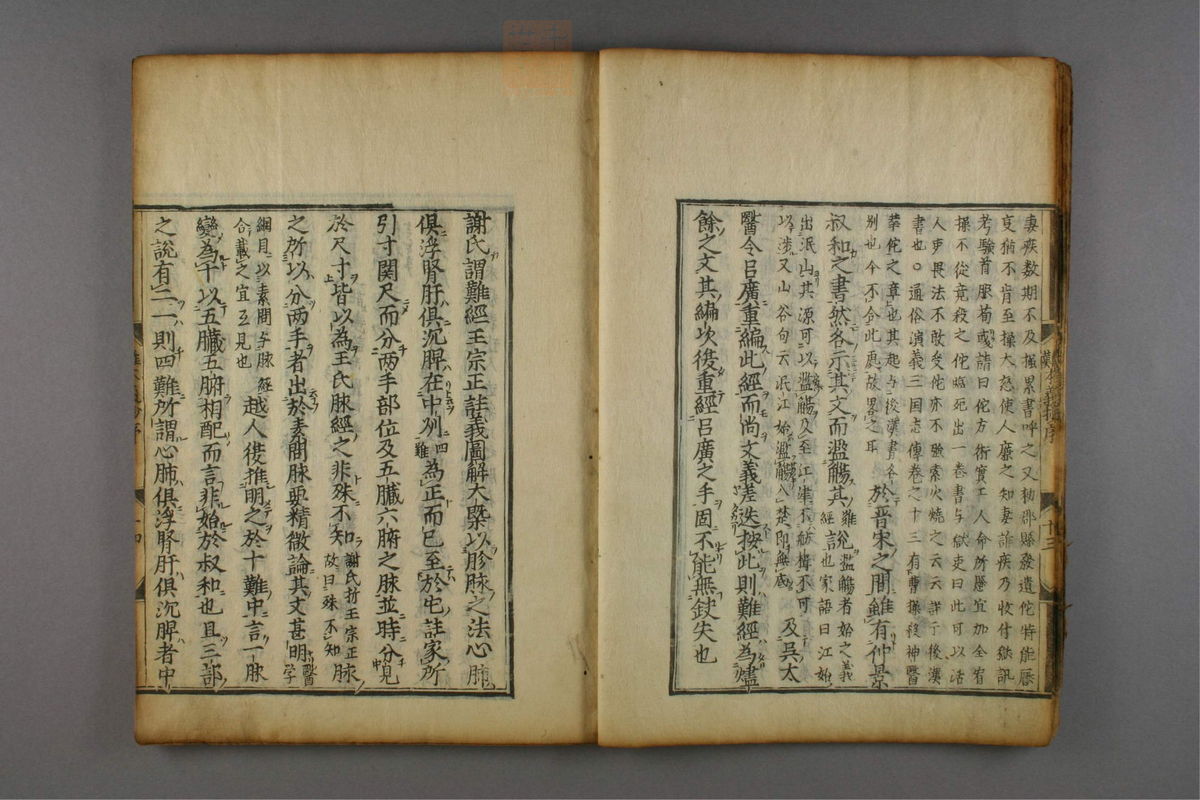 妻疾数期不及操累書呼之又勅郡縣發遣佗恃能厭
食猶不肯至操大怒使人廉之知妻詐疾乃收付獄訊
考驗首服荀彧請曰佗方術實工人命所懸宜加全宥
操不從竟殺之佗臨死出一巻書与獄吏曰此可以活
人吏畏法不敢受佗亦不強索火燒之云云詳于後漢
書也○通俗演義三国志傳巻之十三有曹操殺神醫
華佗之章也其起与後漢書
別也今不合此應故畧之耳
於晋宋之間雖有仲景
叔和之書然各示其文而濫觴其
雖說濫觴者始之義
經也家語曰江始
出泯山其源可以濫觴及至江津不舫楫不可
以渉又山谷句云泯江始濫觴入楚即無底
及吳太
醫令呂廣重編此經而尚文義差迭按此則難經為燼
餘之文其編次復重經呂廣之手固不能無缺失也
難
十三
謝氏謂難經王宗正註義圖解大槩以胗脉之法心肺
俱浮腎肝俱沉脾在中州
四難
為正而已至於它註家所
引寸関尺而分两手部位及五臟六腑之脉並時分見
於尺寸皆以為王氏脉經之非殊不知
謝氏拊王宗正
故曰殊不知
脉
之所以分两手者出於素問脉要精微論其文甚明
醫學
綱目以素問与脉經
合載之宜互見也
越人復推明之於十難中言一脉
變為十以五臟五腑相配而言非始於叔和也且三部
之說有二一則四難所謂心肺俱浮腎肝俱沉脾者中